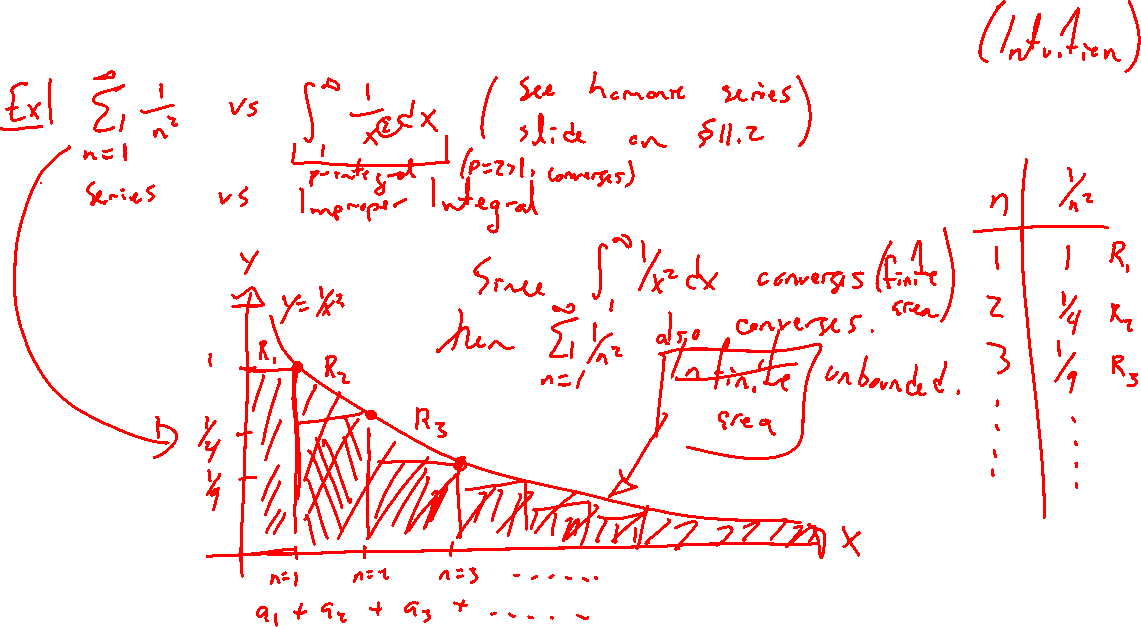 (Intuition)
Ex| ∞∑n=1 1/n² vs ∫₁^∞ 1/x² dx (see harmonic series
slide on §11.2)
p-integral (p=2>1, converges)
series vs Improper Integral
n | 1/n²
1 | 1 R₁
2 | 1/4 R₂
3 | 1/9 R₃
⋮ | ⋮
Since ∫₁^∞ 1/x² dx converges (finite
area)
then ∞∑n=1 1/n² also converges.
infinite unbounded.
area
Y
y=1/x²
R₁ R₂
R₃
1
1/4
1/9
X
n=1 n=2 n=3 ......
a₁ + a₂ + a₃ + .....